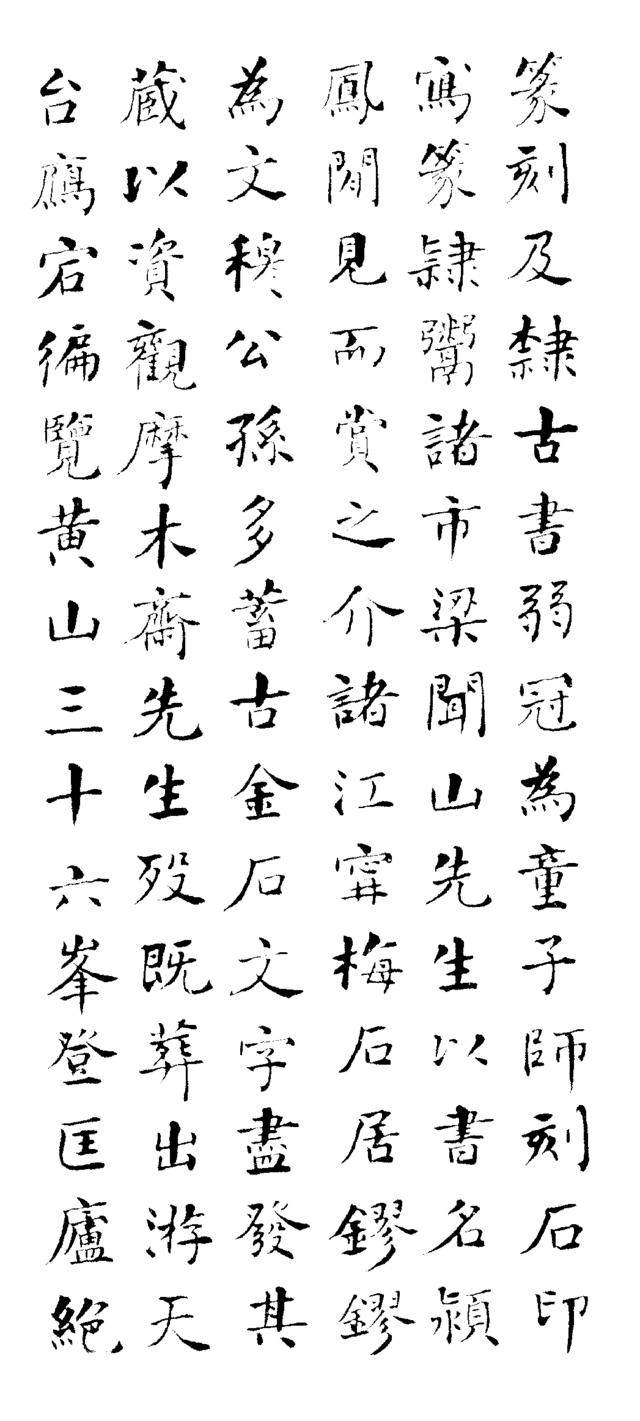 篆刻及隸古書弱冠為童子師刻石印
寫篆隸鬻諸市梁聞山先生以書名潁
鳳閒見而賞之介諸江寧梅石居鏐鏐
為文穆公孫多蓄古金石文字盡發其
藏以資觀摩木齋先生歿既葬出游天
台鴈宕徧覽黃山三十六峯登匡廬絕